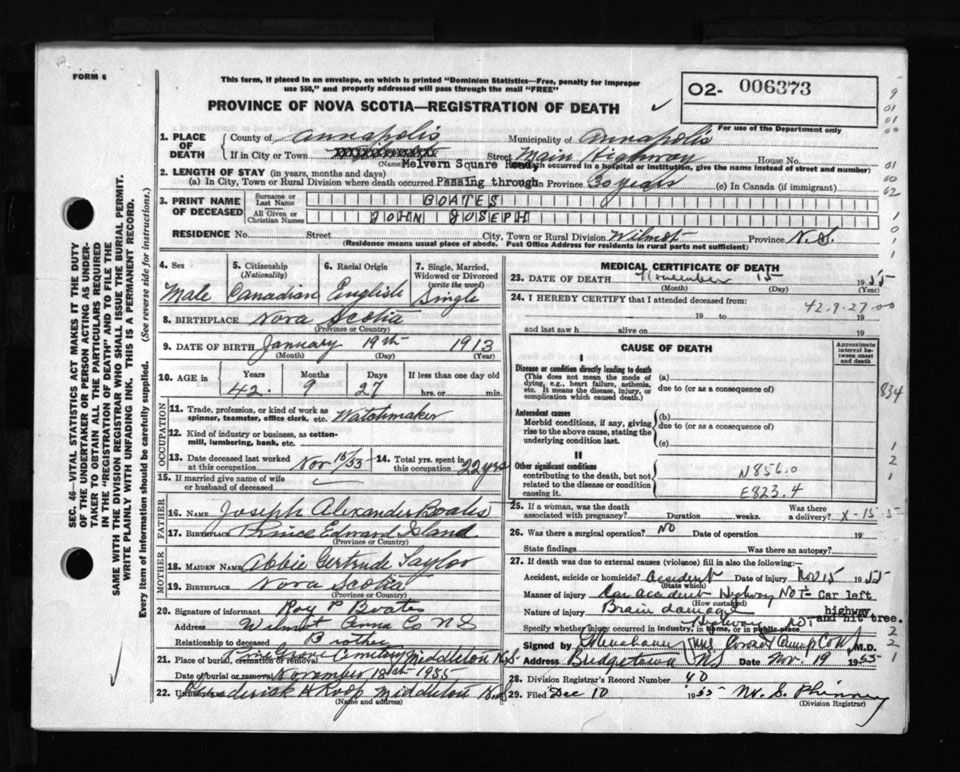 FORM 6
This form, if placed in an envelope, on which is printed "Dominion Statistics—Free, penalty for improper
use $50," and properly addressed will pass through the mail "FREE"
PROVINCE OF NOVA SCOTIA—REGISTRATION OF DEATH
02- 006373
For use of the Department only
1. PLACE OF DEATH
County of Annapolis Municipality of Annapolis
If in City or Town Street Main Highway House No.
(Name) Melvern Square Road, death occurred in a hospital or institution, give its name instead of street and number)
2. LENGTH OF STAY (in years, months and days)
(a) In City, Town or Rural Division where death occurred Passing through Province 30 years (c) In Canada (if immigrant)
3. PRINT NAME OF DECEASED
Surname or Last Name BOATES
All Given or Christian Names JOHN JOSEPH
RESIDENCE No. Street City, Town or Rural Division Wilmot Province N.S.
(Residence means usual place of abode. Post Office Address for residents in rural parts not sufficient)
4. Sex Male
5. Citizenship (Nationality) Canadian
6. Racial Origin English
7. Single, Married, Widowed or Divorced (write the word) Single
8. BIRTHPLACE Nova Scotia
(Province or Country)
9. DATE OF BIRTH January 19th 1913
(Month) (Day) (Year)
10. AGE in Years Months Days If less than one day old
42 9 27 hrs. or min.
OCCUPATION
11. Trade, profession, or kind of work as
spinner, teamster, office clerk, etc. Watchmaker
12. Kind of industry or business, as cotton-
mill, lumbering, bank, etc.
13. Date deceased last worked at this occupation Nov 15/55
14. Total yrs. spent in this occupation 22 yrs
15. If married give name of wife
or husband of deceased
FATHER
16. NAME Joseph Alexander Boates
17. BIRTHPLACE Prince Edward Island
(Province or Country)
MOTHER
18. MAIDEN NAME Abbie Gertrude Taylor
19. BIRTHPLACE Nova Scotia
(Province or Country)
20. Signature of informant Roy P Boates
Address Wilmot Anna Co N S
Relationship to deceased Brother
21. Place of burial, cremation or removal Pine Grove Cemetery Middleton N.S.
Date of burial or removal November 18th 1955
22. Undertaker Frederick A Roop Middleton N.S.
(Name and address)
MEDICAL CERTIFICATE OF DEATH
23. DATE OF DEATH November 15 1955
(Month) (Day) (Year)
24. I HEREBY CERTIFY that I attended deceased from:
42-9-27-00
19 to 19
and last saw h alive on 19
CAUSE OF DEATH
Approximate interval between onset and death
I
Disease or condition directly leading to death
(This does not mean the mode of
dying, e.g., heart failure, asthenia,
etc. It means the disease, injury, or
complication which caused death.)
(a)
due to (or as a consequence of)
Antecedent causes
Morbid conditions, if any, giving
rise to the above cause, stating the
underlying condition last.
(b)
due to (or as a consequence of)
(c)
II
Other significant conditions
contributing to the death, but not
related to the disease or condition
causing it.
N856.0
E823.4
834
25. If a woman, was the death
associated with pregnancy? Duration weeks. Was there a delivery? X-15-5
26. Was there a surgical operation? NO Date of operation 19
State findings Was there an autopsy?
27. If death was due to external causes (violence) fill in also the following:
Accident, suicide or homicide? Accident Date of injury Nov 15 1955
(State which)
Manner of injury Car accident Highway NOT- Car left
(How sustained)
Nature of injury Brain damage highway
and hit tree.
Specify whether injury occurred in industry, in home, or in public place Highway NOT
Signed by M.D.
Address Bridgetown NS Date Nov. 19 1955
28. Division Registrar's Record Number 40
29. Filed Dec 10 1955 S. Phinney
(Division Registrar)
SEC. 46—VITAL STATISTICS ACT MAKES IT THE DUTY
OF THE UNDERTAKER OR PERSON ACTING AS UNDER-
TAKER TO OBTAIN ALL THE PARTICULARS REQUIRED
IN THE "REGISTRATION OF DEATH" AND TO FILE THE
SAME WITH THE DIVISION REGISTRAR WHO SHALL ISSUE THE BURIAL PERMIT.
WRITE PLAINLY WITH UNFADING INK. THIS IS A PERMANENT RECORD.
Every item of information should be carefully supplied. (See reverse side for instructions.)